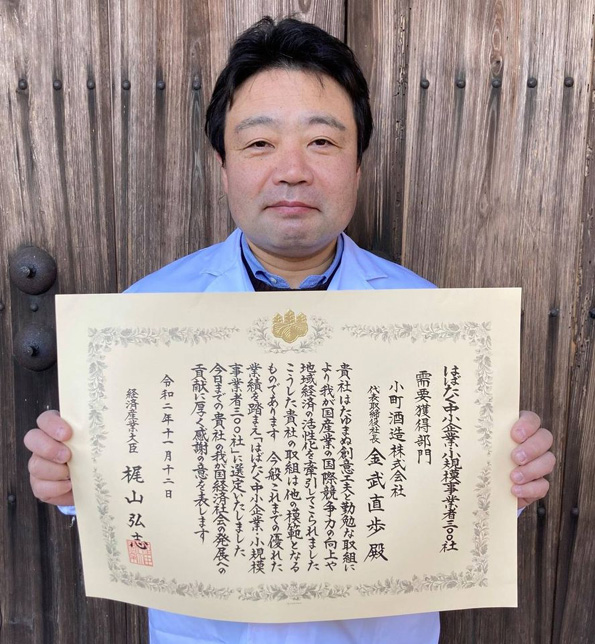 はばたく中小企業・小規模事業者三〇〇社
需要獲得部門
小町酒造株式会社
代表取締役社長 金武直歩 殿
貴社はたゆまぬ創意工夫と勤勉な取組に
より我が国産業の国際競争力の向上や
地域経済の活性化を牽引してこられました
こうした貴社の取組は他の模範となる
ものであります 今般これまでの優れた
業績を踏まえ「はばたく中小企業・小規模
事業者三〇〇社」に選定いたしました
今日までの貴社の我が国経済社会の発展への
貢献に厚く感謝の意を表します
令和二年十一月十二日
経済産業大臣 梶山弘志